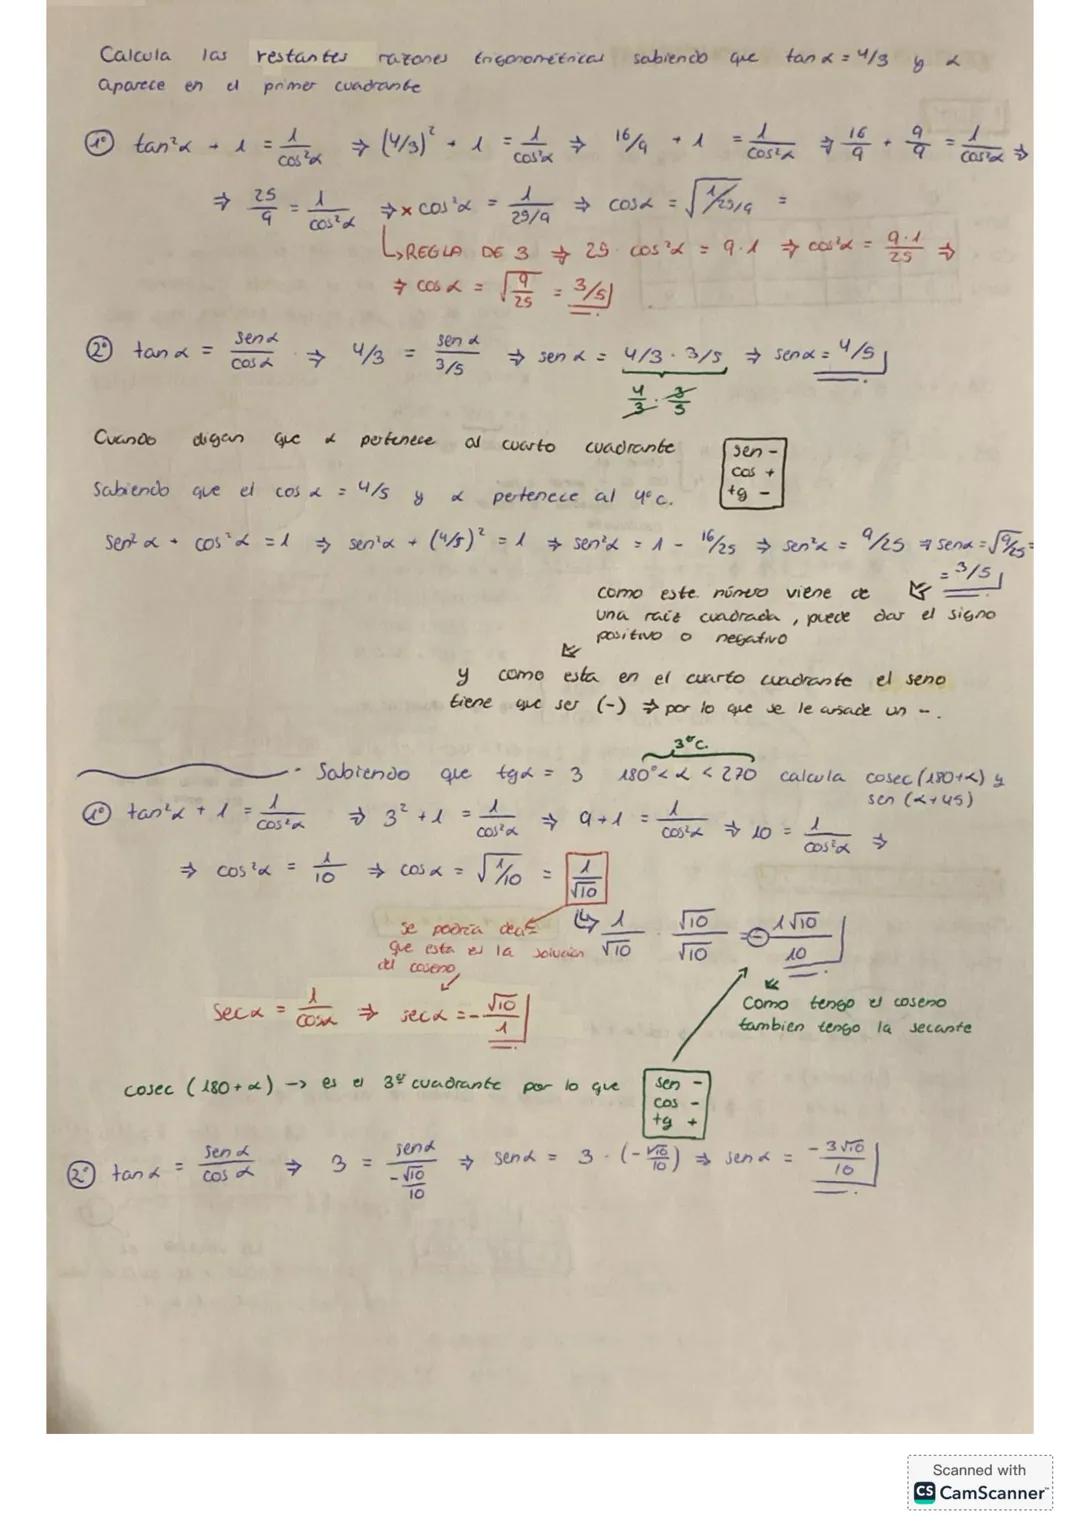 Calcula las restantes razones trigonométricas sabiendo que tan α = 4/3 y α
aparece en el primer cuadrante
1º tan²α + 1 = 1/cos²α ⇒ (4/3)² + 1 = 1/cos²α ⇒ 16/9 + 1 = 1/cos²α ⇒ 16/9 + 9/9 = 1/cos²α ⇒
⇒ 25/9 = 1/cos²α ⇒ × cos²α = 1/25/9 ⇒ cos α = √1/25/9 =
↳ REGLA DE 3 ⇒ 25 · cos²α = 9·1 ⇒ cos²α = 9·1/25 ⇒
⇒ cos α = √9/25 = 3/5
2º tan α = sen α/cos α ⇒ 4/3 = sen α/3/5 ⇒ sen α = 4/3 · 3/5 ⇒ sen α = 4/5
4/3 · 3/5
Cuando digan que α pertenece al cuarto cuadrante
sen -
cos +
tg -
Sabiendo que el cos α = 4/5 y α pertenece al 4º c.
Sen²α + cos²α = 1 ⇒ sen²α + (4/5)² = 1 ⇒ sen²α = 1 - 16/25 ⇒ sen²α = 9/25 ⇒ sen α = √9/25 =
= 3/5
como este número viene de
una raíz cuadrada, puede dar el signo
positivo o negativo
y como esta en el cuarto cuadrante el seno
tiene que ser (-) ⇒ por lo que se le añade un -.
3er C.
- Sabiendo que tg α = 3 180° < α < 270 calcula cosec (180+α) y
sen (α+45)
1º tan²α + 1 = 1/cos²α ⇒ 3² + 1 = 1/cos²α ⇒ 9 + 1 = 1/cos²α ⇒ 10 = 1/cos²α ⇒
⇒ cos²α = 1/10 ⇒ cos α = √1/10 = 1/√10
↳ 1/√10 · √10/√10 = - 1√10/10
se podría decir
que esta es la solución
del coseno
Sec α = 1/cos α ⇒ sec α = - √10/1
Como tengo el coseno
tambien tengo la secante
cosec (180+α) -> es el 3er cuadrante por lo que
sen -
cos -
tg +
2º tan α = sen α/cos α ⇒ 3 = sen α/-√10/10 ⇒ sen α = 3 · (-√10/10) ⇒ sen α = -3√10/10
Scanned with
CS CamScanner